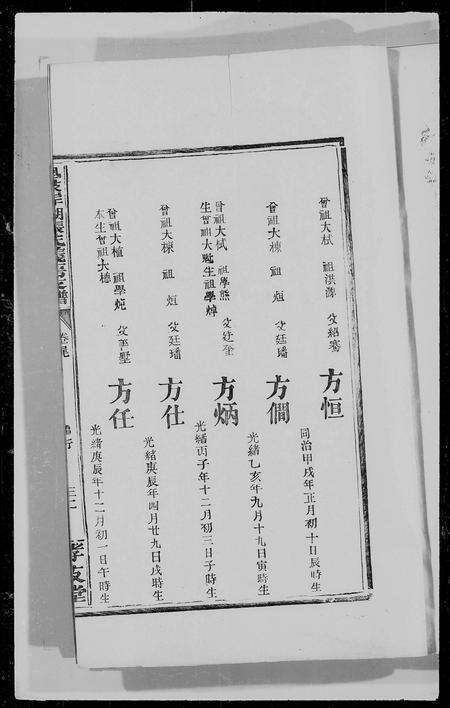 曾祖大栻 祖洪 父紹騫
方恒
同治甲戌年正月初十日辰時生
曾祖大棟 祖烜 父廷璠
方僩
光緒乙亥年九月十九日寅時生
曾祖大栻 祖學熊 父廷奎
生曾祖大 生祖學焯
方炳
光緒丙子年十二月初三日子時生
曾祖大棟 祖烜 父廷璠
方仕
光緒庚辰年四月廿九日戌時生
曾祖大植 祖學炖 父 墅
本生曾祖大橞
方任
光緒庚辰年十二月初一日午時生
孝友堂